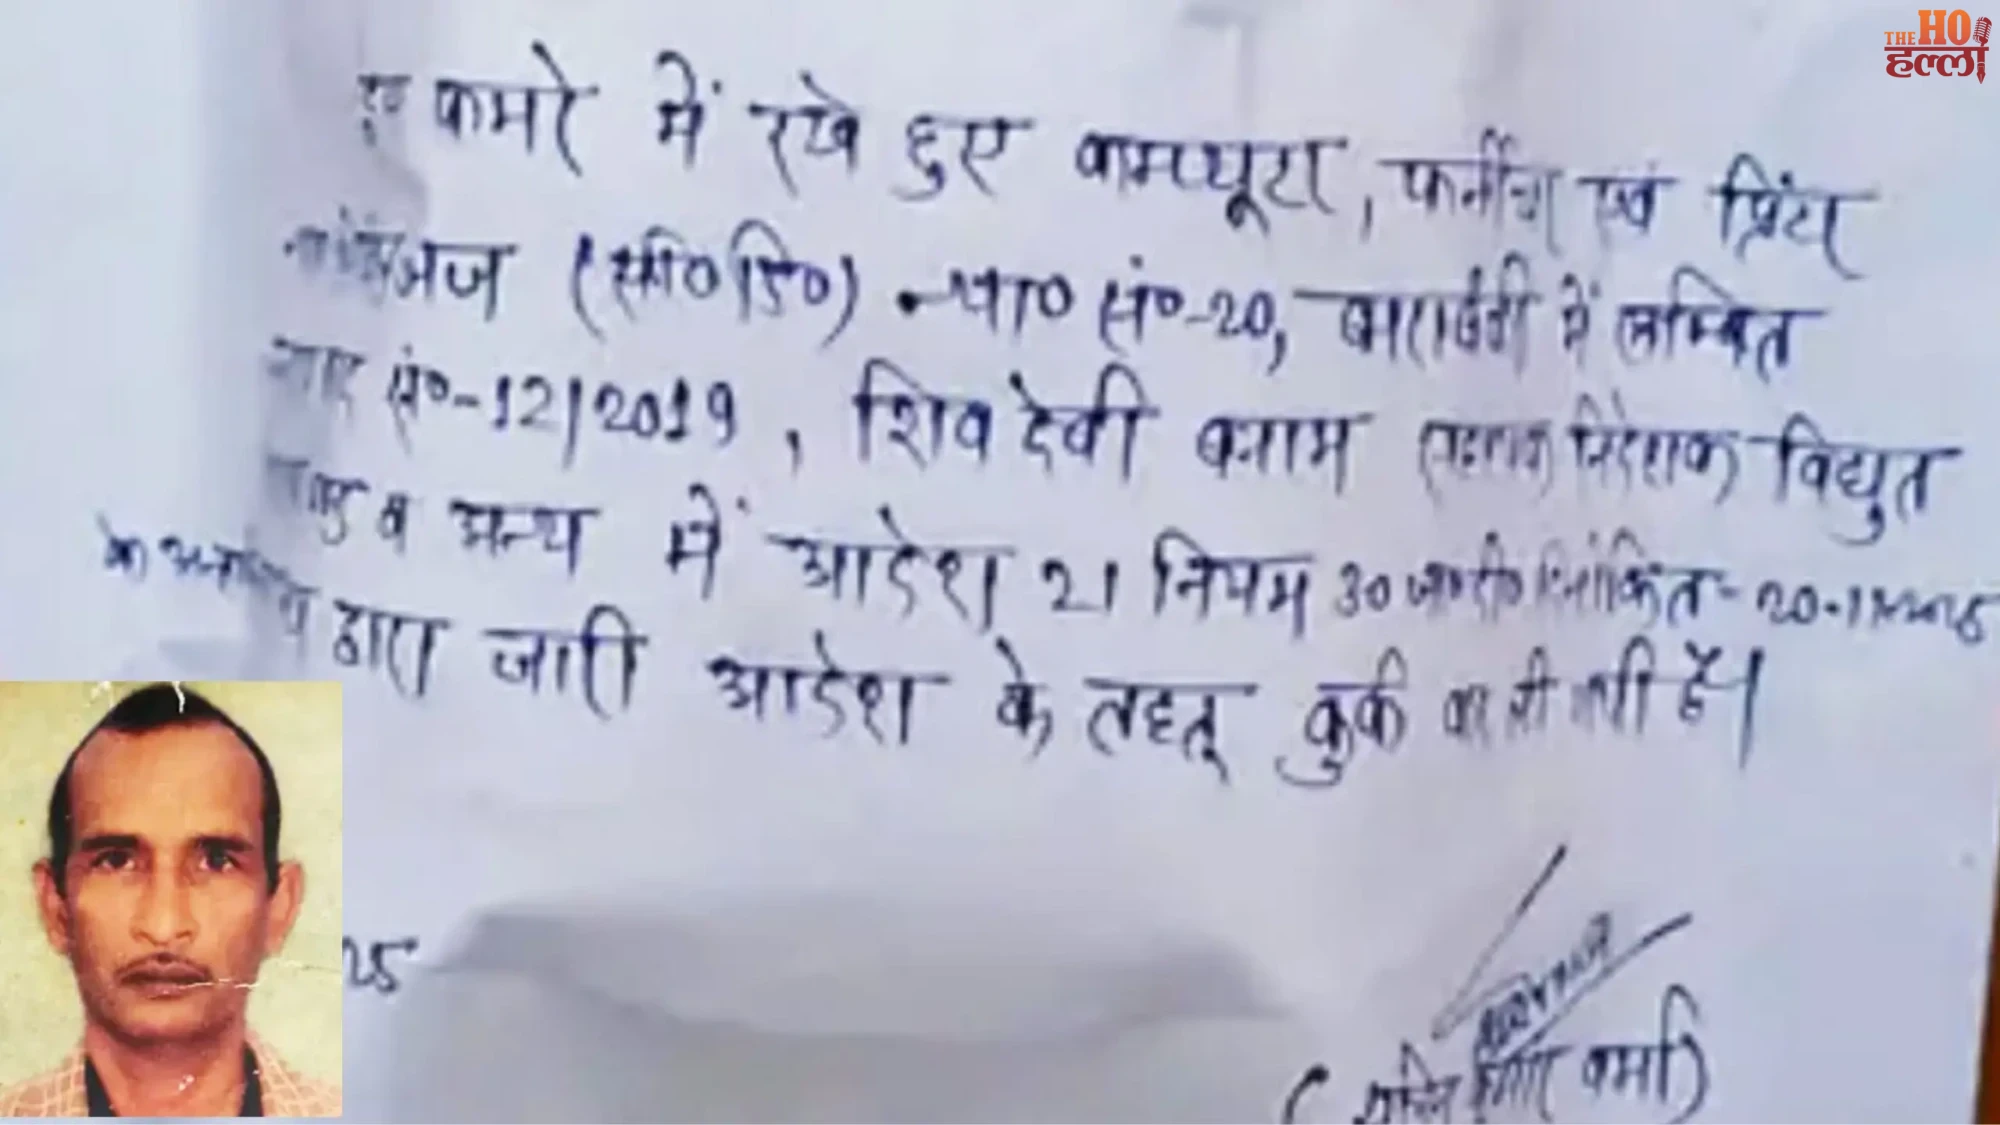 THE HO
हल्ला
कमरे में रखे हुए कम्प्यूटर, फर्नीचर एवं प्रिंटर
जज (सी०डि०) - न्या० सं०-20, बाराबंकी में लम्बित
वाद सं०-12/2019, शिव देवी बनाम निदेशक विद्युत
व अन्य में आदेश 21 नियम 30 जा०दी० दिनांकित-20-11-
के
द्वारा जारी आदेश के तहत् कुर्क कर ली गयी है।
25
( कुमार वर्मा)